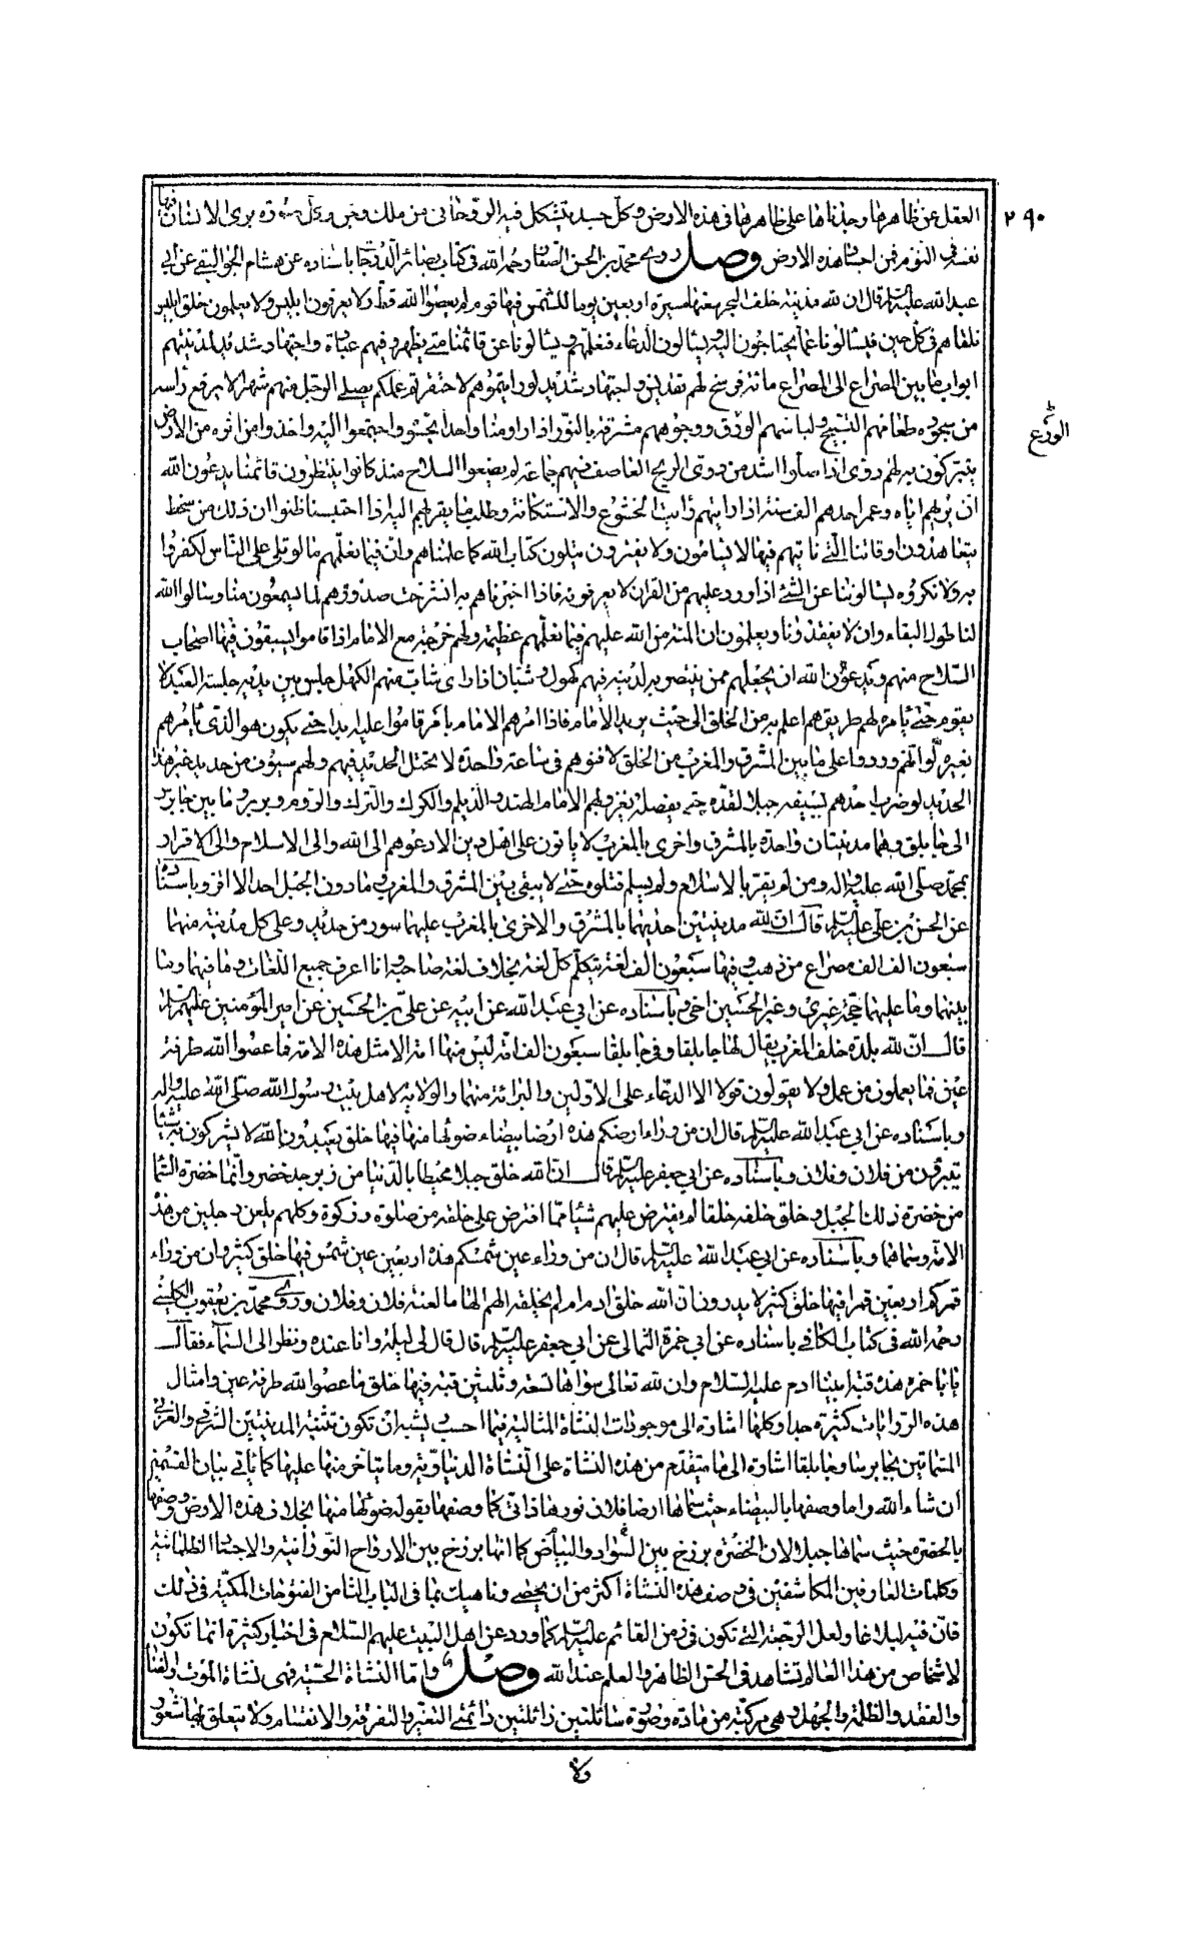 ٢٩٠
العقل عن ظاهرها وجدناها على ظاهرها فى هذه الارض وكل جسد يتشكل فيه الروحانى من ملك وجن وكل صورة يرى الانسان فيها
نفسه فى النوم فمن اجساد هذه الارض وصل روى محمد بن الحسن الصفار رحمه الله فى كتاب بصائر الدرجات باسناده عن هشام الجواليقى عن ابى
عبد الله عليه السلام قال ان لله مدينة خلف البحر سعتها مسيرة اربعين يوما للشمس فيها قوم لم يعصوا الله قط ولا يعرفون ابليس ولا يعلمون خلق ابليس
نلقاهم فى كل حين فيسالونا عما يحتاجون اليه ويسالون الدعاء فنعلمهم ويسالونا عن قائمنا متى يظهر وفيهم عبادة واجتهاد شديد لمدينتهم
ابواب ما بين المصراع الى المصراع مائة فرسخ لهم تقديس واجتهاد شديد لو رايتموهم لاحتقرتم عملكم يصلى الرجل منهم شهرا لا يرفع راسه
من سجوده طعامهم التسبيح ولباسهم الورق ووجوههم مشرقة بالنور اذا راوا منا واحدا لحسوه واجتمعوا اليه واخذوا من اثره من الارض
الورع
يتبركون به لهم دوى اذا صلوا اشد من دوى الريح العاصف فيهم جماعة لم يضعوا السلاح منذ كانوا ينتظرون قائمنا يدعون الله
ان يريهم اياه وعمر احدهم الف سنة اذا رايتهم رايت الخشوع والاستكانة وطلب ما يقربهم اليه اذا احتبسنا ظنوا ان ذلك من سخط
يتعاهدون اوقاتنا التى ناتيهم فيها لا يسامون ولا يفترون يتلون كتاب الله كما علمناهم وان فيما نعلمهم ما لو تلى على الناس لكفروا
به ولانكروه يسالوننا عن الشئ اذا ورد عليهم من القران لا يعرفونه فاذا اخبرناهم به انشرحت صدورهم لما يسمعون منا ويسالوا الله
لنا طول البقاء وان لا يفقدونا ويعلمون ان المنة من الله عليهم فيما نعلمهم عظيمة ولهم خرجة مع الامام اذا قاموا يسبقون فيها اصحاب
السلاح منهم ويدعون الله ان يجعلهم ممن ينتصر به لدينه فيهم كهول وشبان اذا راى شاب منهم الكهل جلس بين يديه جلسة العبد لا
يقوم حتى يامره لهم طريق هم اعلم به من الخلق الى حيث يريد الامام فاذا امرهم الامام بامر قاموا عليه ابدا حتى يكون هو الذى يامرهم
بغيره لو انهم وردوا على ما بين المشرق والمغرب من الخلق لافنوهم فى ساعة واحدة لا يختل الحديد فيهم ولهم سيوف من حديد غير هذا
الحديد لو ضرب احدهم بسيفه جبلا لقده حتى يفصله يغزو بهم الامام الهند والديلم والكرك والترك والروم وبربر وما بين جابرس
الى جابلق وهما مدينتان واحدة بالمشرق واخرى بالمغرب لا ياتون على اهل دين الا دعوهم الى الله والى الاسلام والى الاقرار
بمحمد صلى الله عليه واله ومن لم يقر بالاسلام ولم يسلم قتلوه حتى لا يبقى بين المشرق والمغرب وما دون الجبل احد الا اقر وباسناده
عن الحسن بن على عليه السلام قال ان لله مدينتين احديهما بالمشرق والاخرى بالمغرب عليهما سور من حديد وعلى كل مدينة منهما
سبعون الف الف مصراع من ذهب وفيها سبعون الف لغة يتكلم كل لغة بخلاف لغة صاحبه وانا اعرف جميع اللغات وما فيهما وما
بينهما وما عليهما حجة غيرى وغير الحسين اخى وباسناده عن ابى عبد الله عن ابيه عن على بن الحسين عن امير المؤمنين عليهم السلام
قال ان لله بلدة خلف المغرب يقال لها جابلقا وفى جابلقا سبعون الف امة ليس منها امة الا مثل هذه الامة فما عصوا الله طرفة
عين فما يعملون من عمل ولا يقولون قولا الا الدعاء على الاولين والبراءة منهما والولاية لاهل بيت رسول الله صلى الله عليه واله
وباسناده عن ابى عبد الله عليه السلام قال ان من وراء ارضكم هذه ارضا بيضاء ضوئها منها فيها خلق يعبدون الله لا يشركون به شيئا
يتبرؤن من فلان وفلان وباسناده عن ابى جعفر عليه السلام قال ان الله خلق جبلا محيطا بالدنيا من زبرجد خضر وانما خضرة السماء
من خضرة ذلك الجبل وخلق خلفه خلقا لم يفترض عليهم شيئا مما افترض على خلقه من صلوة وزكوة وكلهم يلعن رجلين من هذه
الامة وسماهما وباسناده عن ابى عبد الله عليه السلام قال ان من وراء عين شمسكم هذه اربعين عين شمس فيها خلق كثير وان من وراء
قمركم اربعين قمرا فيها خلق كثير لا يدرون ان الله خلق ادم ام لم يخلقه الهموا الهاما لعنة فلان وفلان وروى محمد بن يعقوب الكلينى
رحمه الله فى كتاب الكافى باسناده عن ابى حمزة الثمالى عن ابى جعفر عليه السلام قال قال لى ليلة وانا عنده ونظر الى السماء فقال
يا ابا حمزه هذه قبة ابينا ادم عليه السلام وان لله تعالى سواها تسعة وثلثين قبة فيها خلق ما عصوا الله طرفة عين وامثال
هذه الروايات كثيرة جدا وكلها اشارة الى موجودات النشاة المثالية فيما احسب يشبه ان تكون تثنية المدينتين الشرقى والغربى
المسماتين بجابرسا وجابلقا اشارة الى ما يتقدم من هذه النشاة على النشاة الدنياوية وما يتاخر منها عليها كما ياتى بيان القسمين
ان شاء الله واما وصفها بالبيضاء حيث سماها ارضا فلان نورها ذاتى كما وصفها بقوله ضوئها منها بخلاف هذه الارض ووصفها
بالخضرة حيث سماها جبلا لان الخضرة برزخ بين السواد والبياض كما انها برزخ بين الارواح النورانية والاجساد الظلمانية
وكلمات العارفين المكاشفين فى وصف هذه النشاة اكثر من ان يحصى وناهيك بما فى الباب الثامن الفتوحات المكية فى ذلك
فان فيه لبلاغا ولعل الرجعة التى تكون فى زمن القائم عليه السلام كما ورد عن اهل البيت عليهم السلام فى اخبار كثيرة انما تكون
لاشخاص من هذا العالم تشاهد فى الحس الظاهر والعلم عند الله وصل واما النشاة الحسية فهى نشاة الموت والفناء
والفقد والظلمة والجهل وهى مركبة من مادة وصورة سائلتين زائلتين دائمتى التغير والتفرقة والانقسام ولا يتعلق بها شعور
ولا